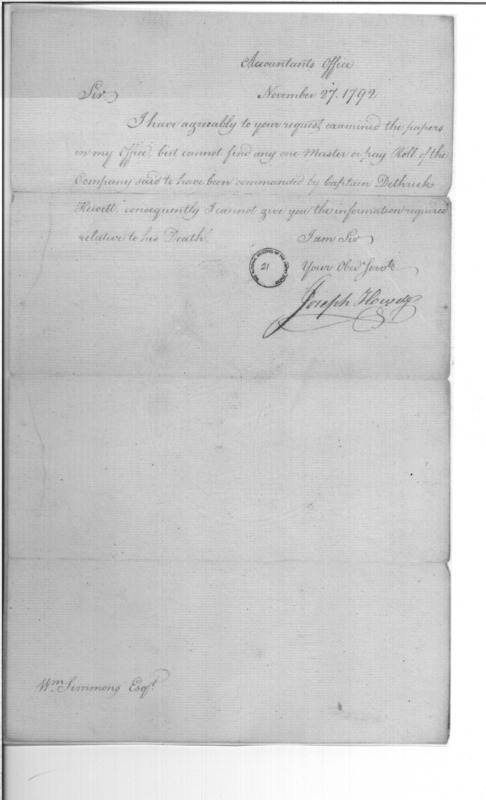 Accountants Office
Sir November 27. 1792
I have agreeably to your request examined the papers
in my Office, but cannot find any one Muster or pay Roll of the
Company said to have been commanded by Captain Dethrick
Hewitt, consequently I cannot give you the information required
relative to his Death.
I am Sir
Your Obed. Servt.
Joseph Howell
21
Wm. Simmons Esqr.